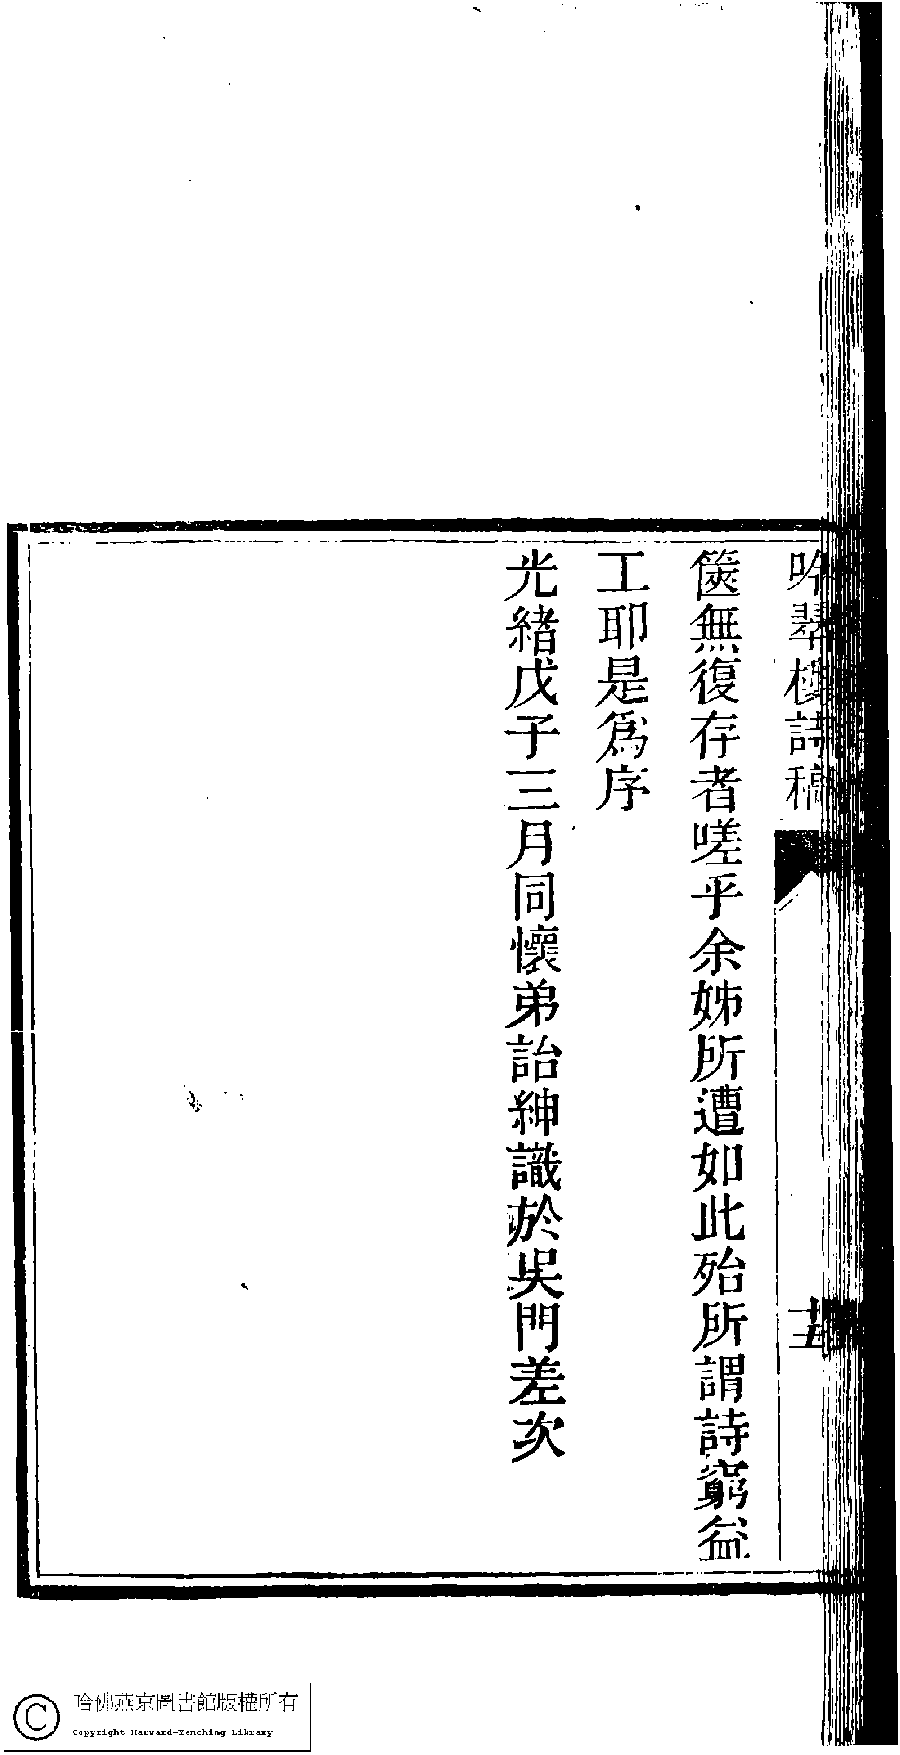 吟翠樓詩稿
篋無復存者嗟乎余姊所遭如此殆所謂詩窮益
工耶是爲序
光緒戊子三月同懷弟詒紳識於吳門差次
哈佛燕京圖書館版權所有
Copyright Harvard-Yenching Library